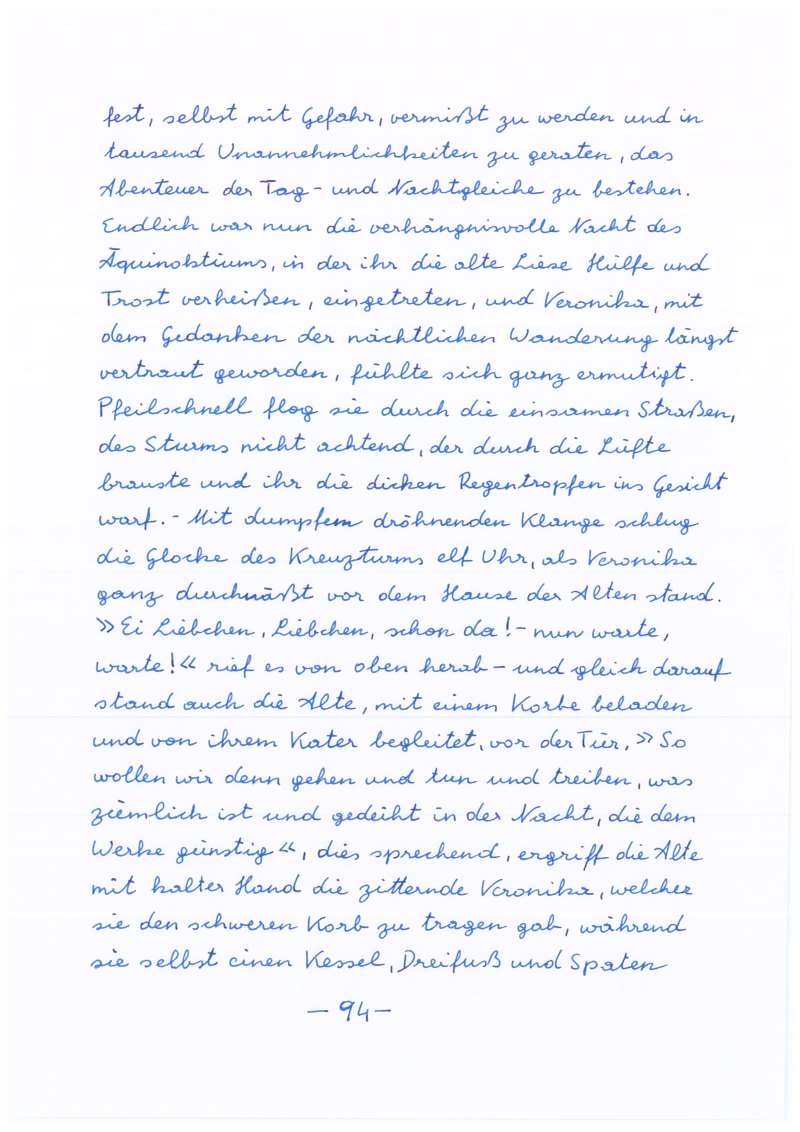 fest, selbst mit Gefahr, vermißt zu werden und in
tausend Unannehmlichkeiten zu geraten, das
Abenteuer der Tag- und Nachtgleiche zu bestehen.
Endlich war nun die verhängnisvolle Nacht des
Äquinoktiums, in der ihr die alte Liese Hülfe und
Trost verheißen, eingetreten, und Veronika, mit
dem Gedanken der nächtlichen Wanderung längst
vertraut geworden, fühlte sich ganz ermutigt.
Pfeilschnell flog sie durch die einsamen Straßen,
des Sturms nicht achtend, der durch die Lüfte
brauste und ihr die dicken Regentropfen ins Gesicht
warf. - Mit dumpfem dröhnenden Klange schlug
die Glocke des Kreuzturms elf Uhr, als Veronika
ganz durchnäßt vor dem Hause der Alten stand.
»Ei Liebchen, Liebchen, schon da! - nun warte,
warte!« rief es von oben herab - und gleich darauf
stand auch die Alte, mit einem Korbe beladen
und von ihrem Kater begleitet, vor der Tür, »So
wollen wir denn gehen und tun und treiben, was
ziemlich ist und gedeiht in der Nacht, die dem
Werke günstig«, dies sprechend, ergriff die Alte
mit kalter Hand die zitternde Veronika, welcher
sie den schweren Korb zu tragen gab, während
sie selbst einen Kessel, Dreifuß und Spaten
- 94 -